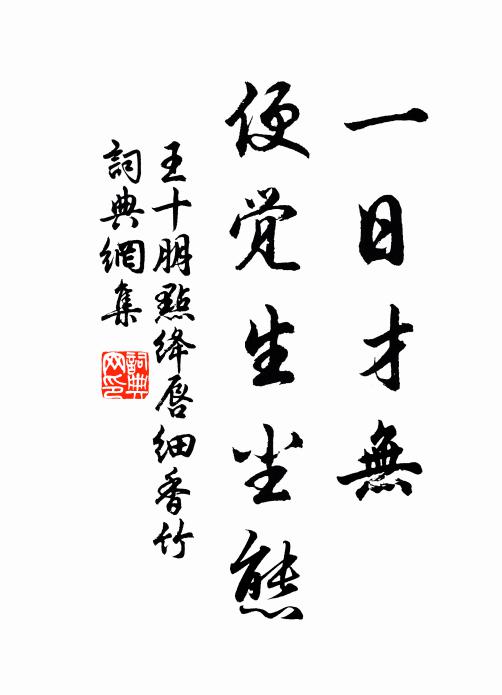 一日才無
便觉生尘態
王十朋點绛唇细香竹
詞典網集
詞典網印